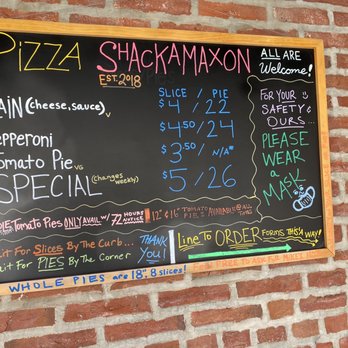 PIZZA SHACKAMAXON
EST. 2018
ALL ARE
Welcome!
SLICE / PIE
AIN (cheese, sauce) V
$4 / 22
epperoni
$4 50 / 24
omato Pie VG
$3 50 / N/A*
SPECIAL (changes weekly)
$5 / 26
FOR YOUR
SAFETY &
OURS...
PLEASE
WEAR
a
MASK
PIE Tomato Pies ONLY AVAIL W/ 72 HOURS NOTICE
12" & 16" TOMATO PIES AVAILABLE @ ALL TIMES
it For Slices By The Curb...
it For PIES By The Corner
THANK
YOU!
Line To ORDER FORMS THIS A WAY!
WHOLE PIES are 18", 8 slices!